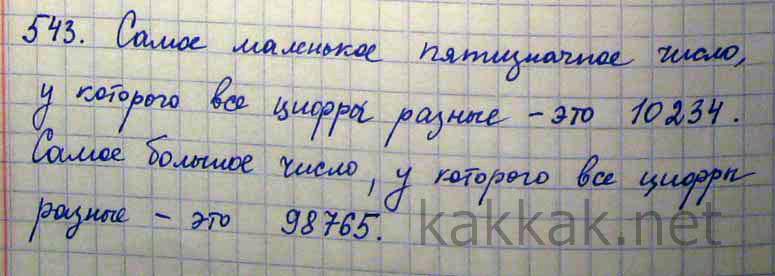 543. Самое маленькое пятизначное число,
у которого все цифры разные - это 10234.
Самое большое число, у которого все цифры
разные - это 98765.
kakkak.net